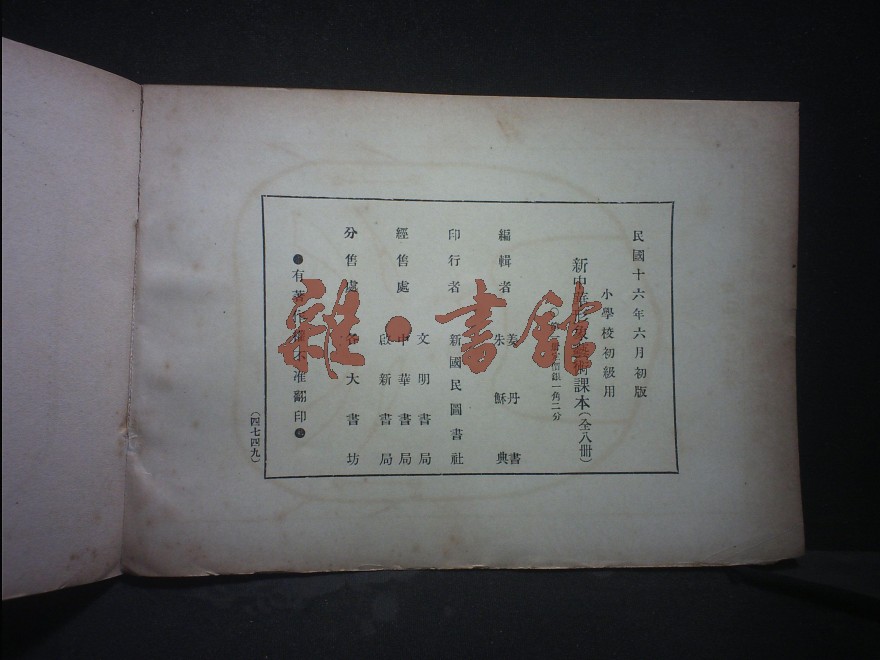 民國十六年六月初版
小學校初級用
新中華形象藝術課本(全八冊)
價銀一角二分
編輯者
姜丹書
朱穌典
印行者 新國民圖書社
經售處
文明書局
中華書局
啟新書局
分售處 各大書坊
●有著作權不准翻印●
(四七四九)
雜·書館